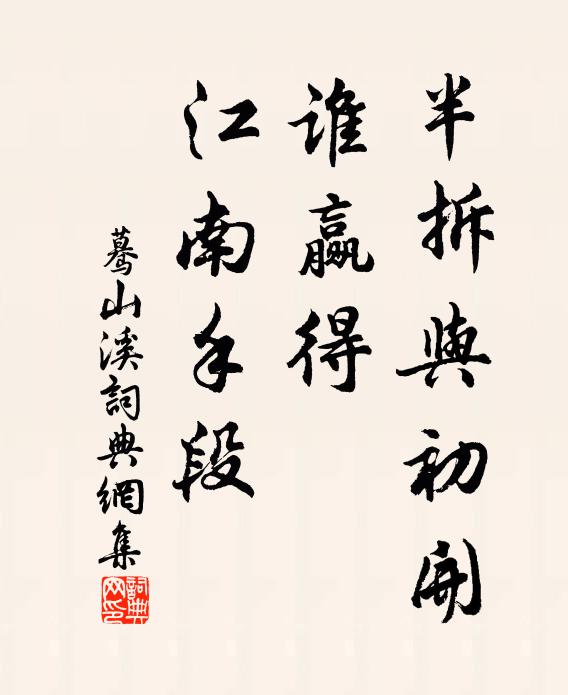 半拆與初開
誰贏得
江南手段
驀山溪詞典網集
詞典網印